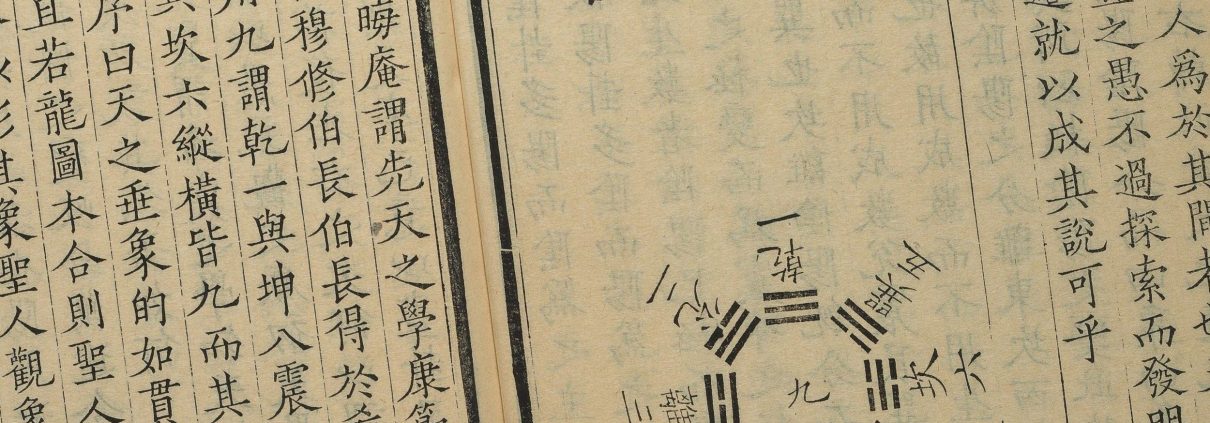 人為於其間者也
之愚不過探索而發明
就以成其說可乎
一乾
二兌
離三
五巽
六坎
九
晦庵謂先天之學康節
穆修伯長伯長得於希
用九謂乾一與坤八震
其坎六縱橫皆九而其
序曰天之垂象的如貫
且若龍圖本合則聖人
以形其象聖人觀象